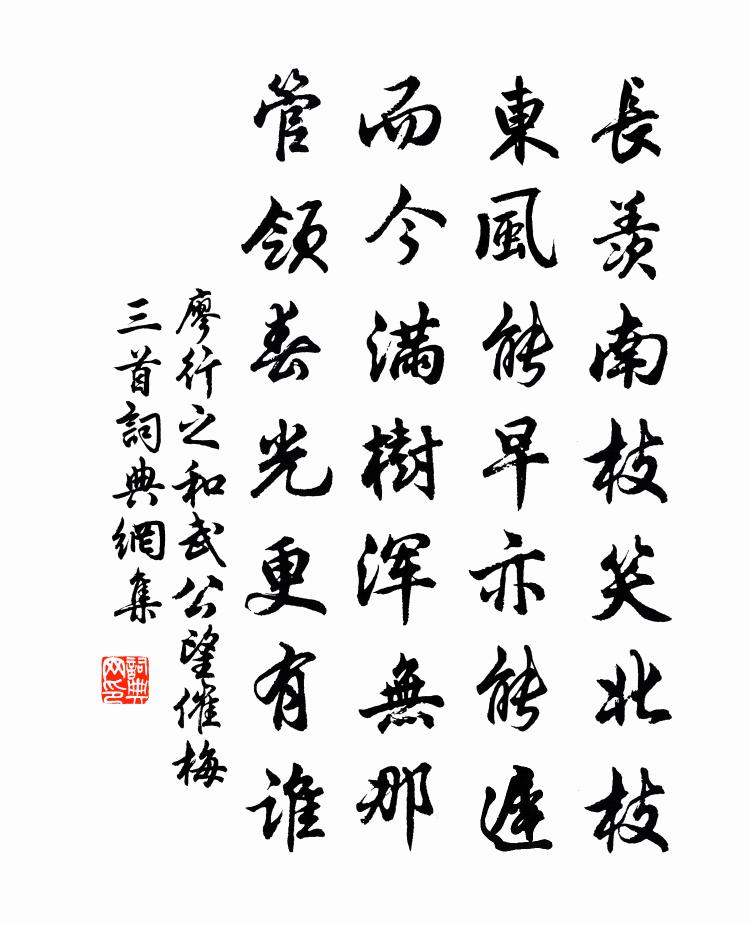 長羨南枝笑北枝
東風能早亦能遲
而今滿樹渾無那
管領春光更有誰
廖行之和武公望催梅
三首詞典網集
詞典網印